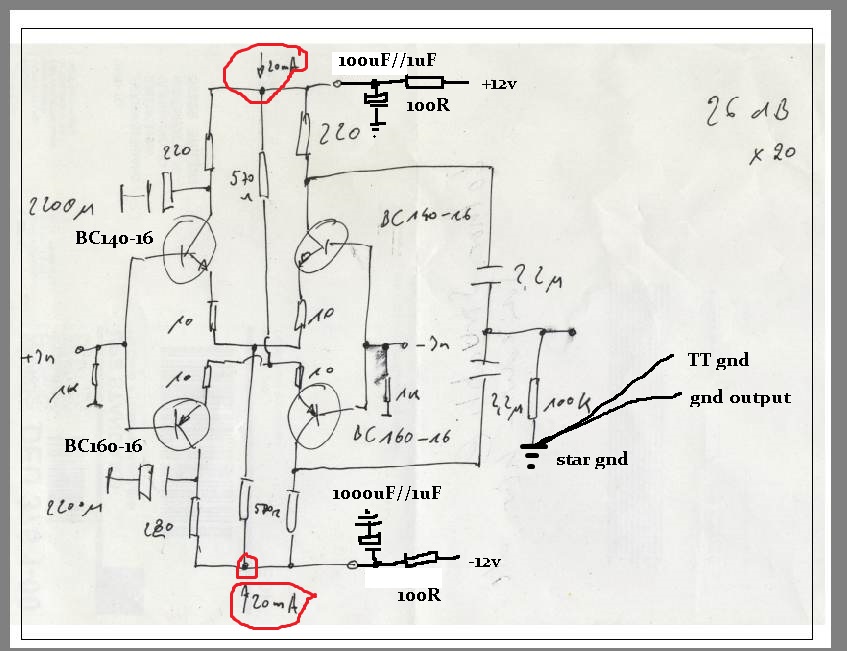 20mA
100uF//1uF
+12v
100R
26 dB
x 20
220
220
570
Ω
2200µ
BC140-16
BC140-16
2,2µ
10
10
+In
-In
1K
10
10
1K
2,2µ
100K
TT gnd
gnd output
BC160-16
BC160-16
star gnd
2200µ
1000uF//1uF
220
-12v
20mA
100R